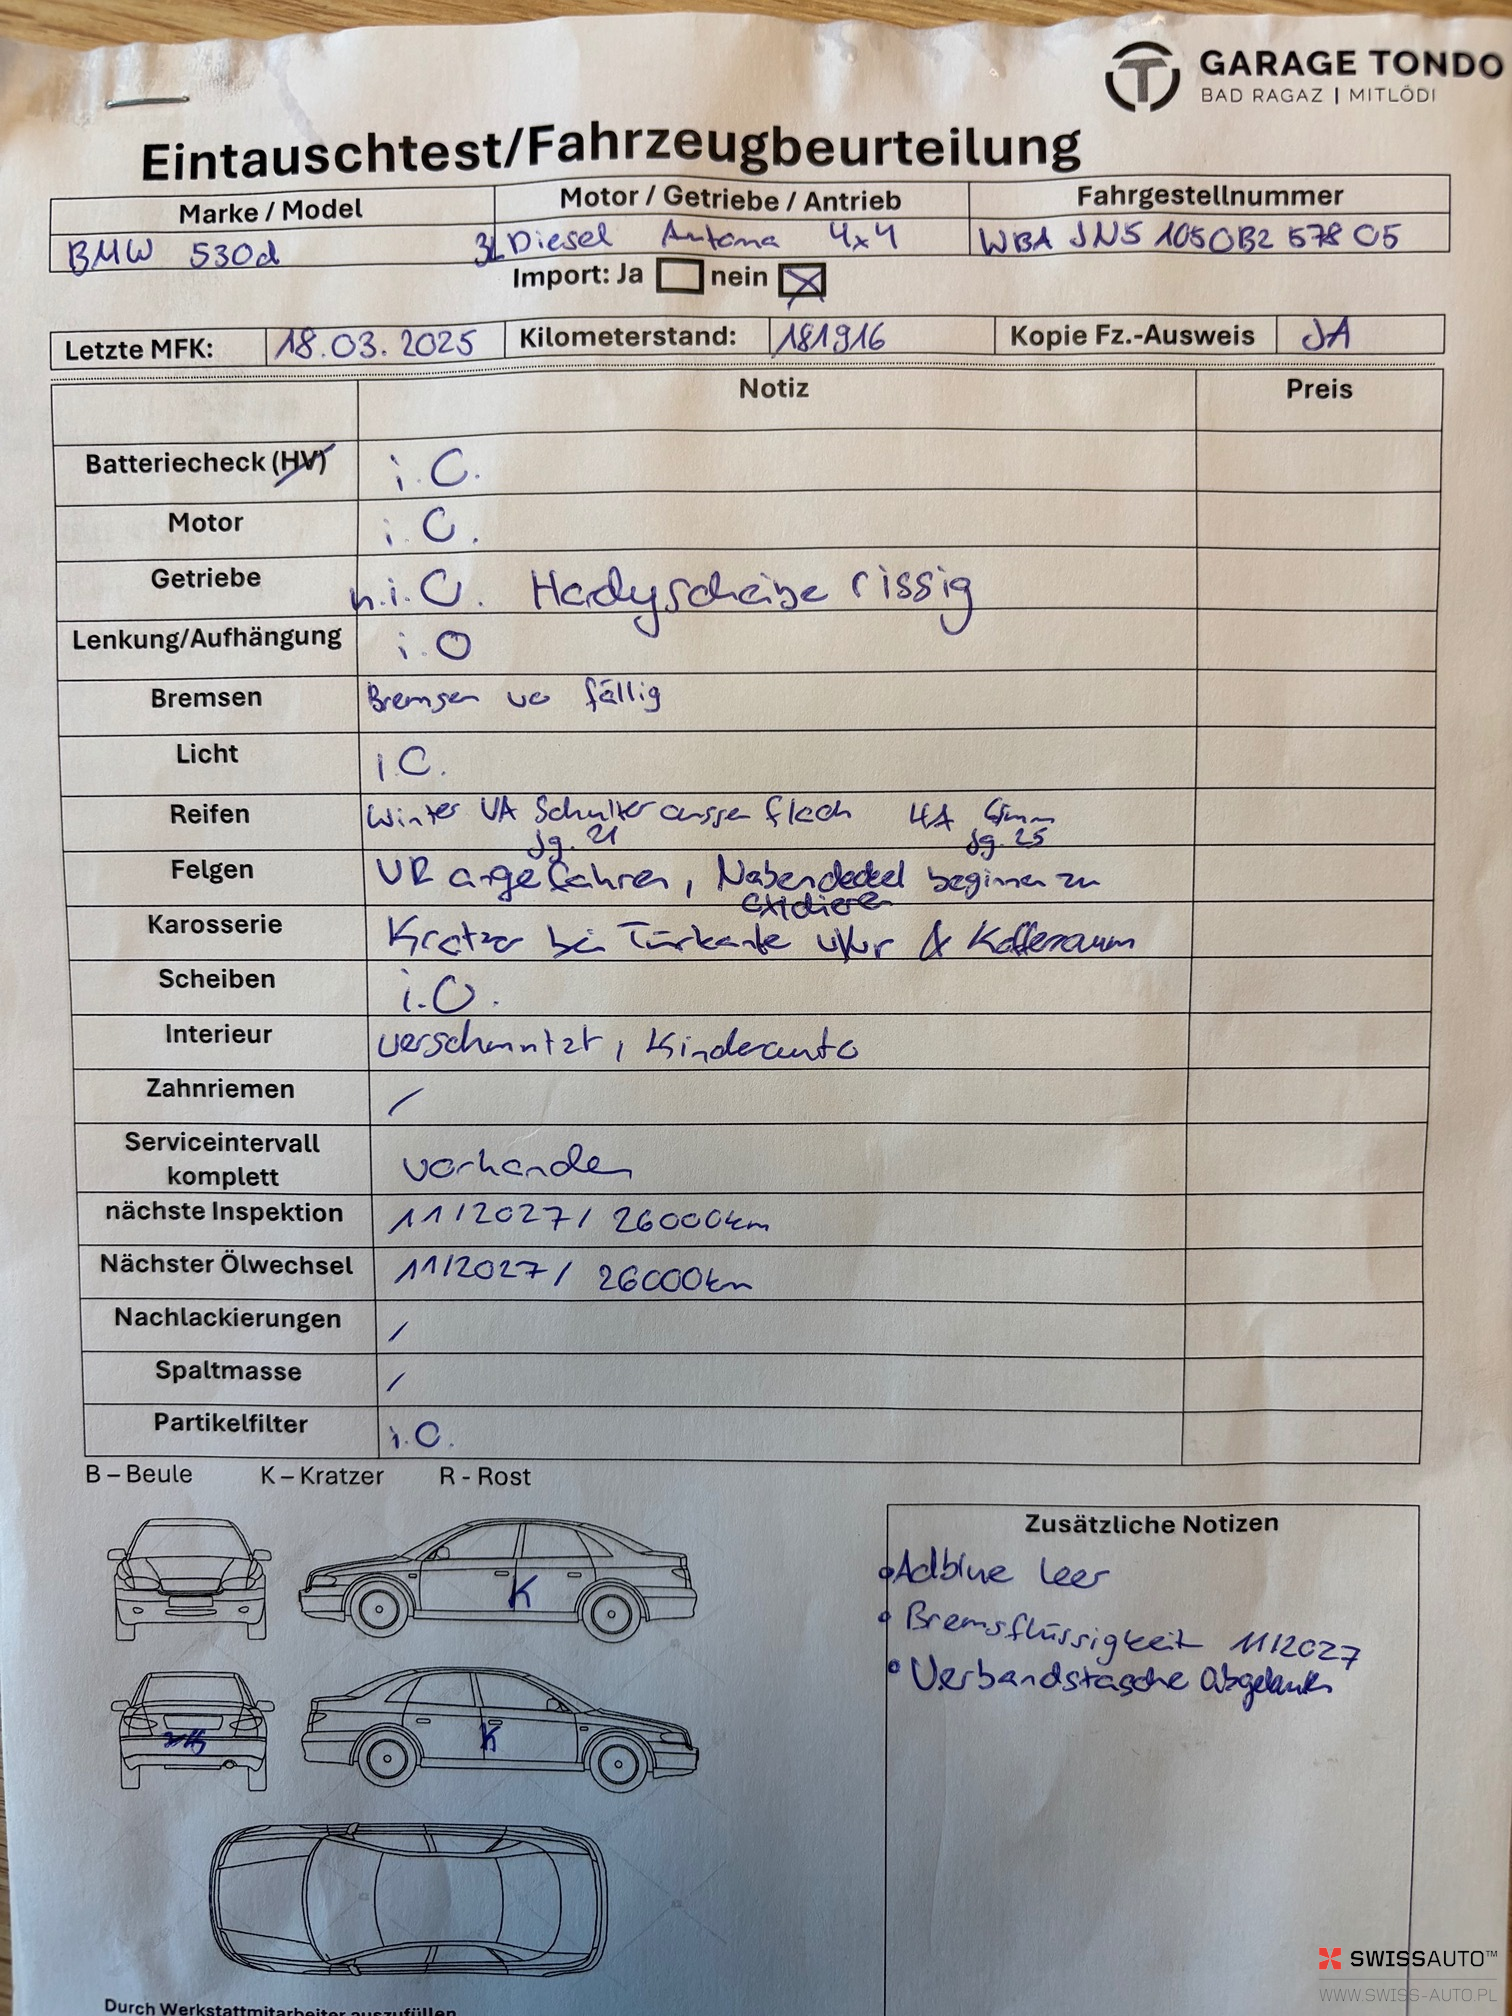 GARAGE TONDO
BAD RAGAZ | MITLÖDI
Eintauschtest/Fahrzeugbeurteilung
Marke / Model Motor / Getriebe / Antrieb Fahrgestellnummer
BMW 530d 3L Diesel Automa 4x4 WBA JN5 1050B2 578 05
Import: Ja nein
Letzte MFK: 18.03.2025 Kilometerstand: 181916 Kopie Fz.-Ausweis JA
Notiz Preis
Batteriecheck (HV) i.O.
Motor i.O.
Getriebe n.i.O. Hardyscheibe rissig
Lenkung/Aufhängung i.O
Bremsen Bremsen vo fällig
Licht i.O.
Reifen Winter VA Schulter aussen flach HA 6mm
Jg. 21 Jg. 25
Felgen VR angefahren, Nabendeckel beginnen zu
oxidieren
Karosserie Kratzer bei Türkante vl/vr & Kofferraum
Scheiben i.O.
Interieur verschmutzt, Kinderauto
Zahnriemen /
Serviceintervall
komplett vorhanden
nächste Inspektion 11/2027/ 26000km
Nächster Ölwechsel 11/2027/ 26000km
Nachlackierungen /
Spaltmasse /
Partikelfilter i.O.
B – Beule K – Kratzer R - Rost
Zusätzliche Notizen
Adblue leer
Bremsflüssigkeit 11/2027
Verbandstasche abgelaufen
K
K
Durch Werkstattmitarbeiter auszufüllen
SWISSAUTO™
WWW.SWISS-AUTO.PL